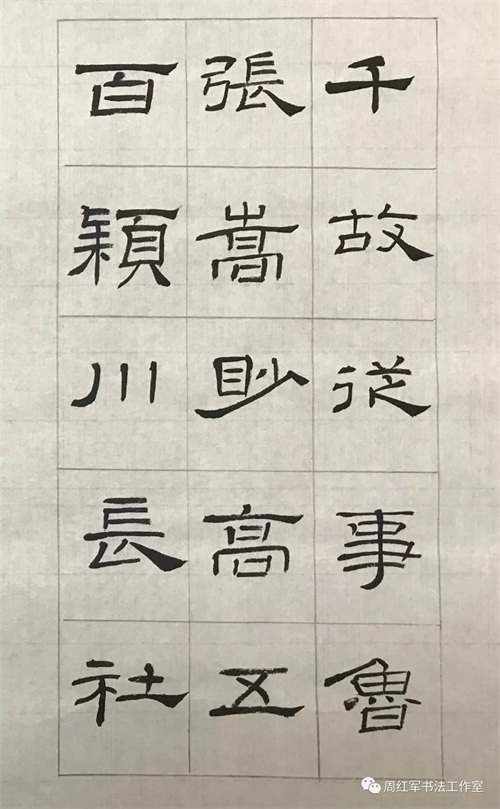 千故从事魯
張嵩眇高五
百潁川長社
周红军书法工作室